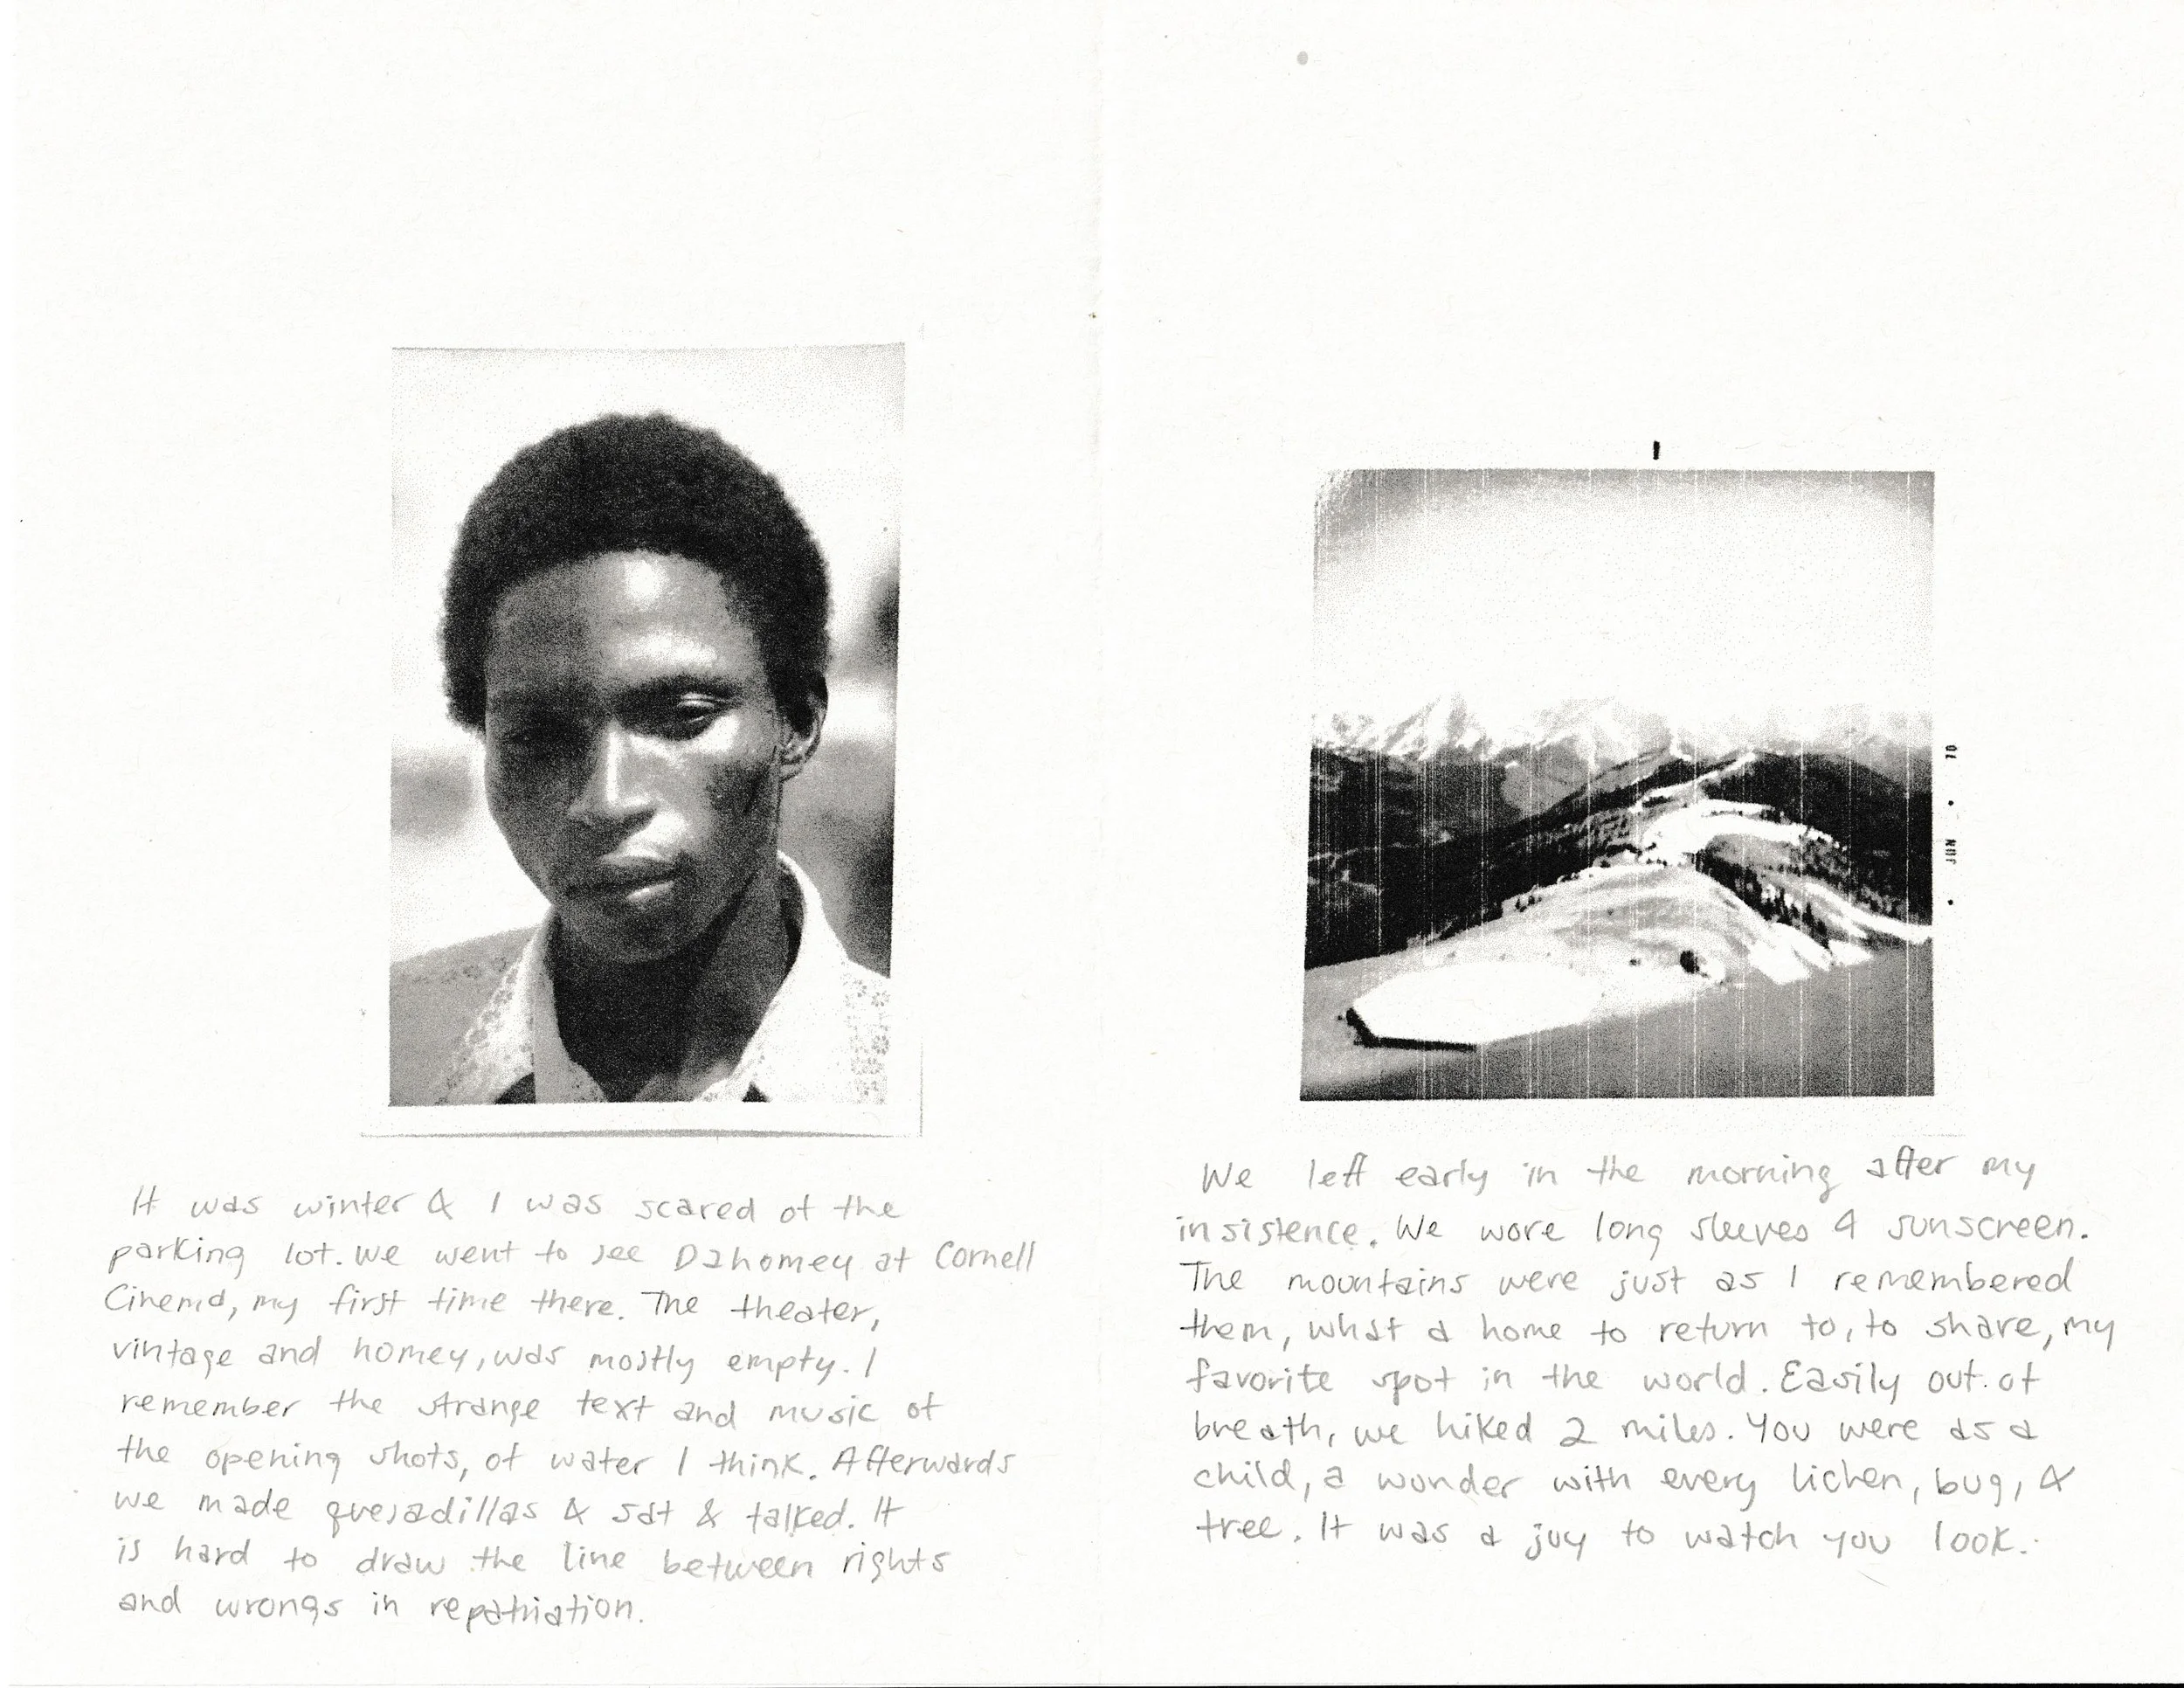 It was winter & I was scared of the
parking lot. We went to see Dahomey at Cornell
Cinema, my first time there. The theater,
vintage and homey, was mostly empty. I
remember the strange text and music of
the opening shots, of water I think. Afterwards
we made quesadillas & sat & talked. It
is hard to draw the line between rights
and wrongs in repatriation.
• JUN • 70
We left early in the morning after my
insistence. We wore long sleeves & sunscreen.
The mountains were just as I remembered
them, what a home to return to, to share, my
favorite spot in the world. Easily out of
breath, we hiked 2 miles. You were as a
child, a wonder with every lichen, bug, &
tree. It was a joy to watch you look.